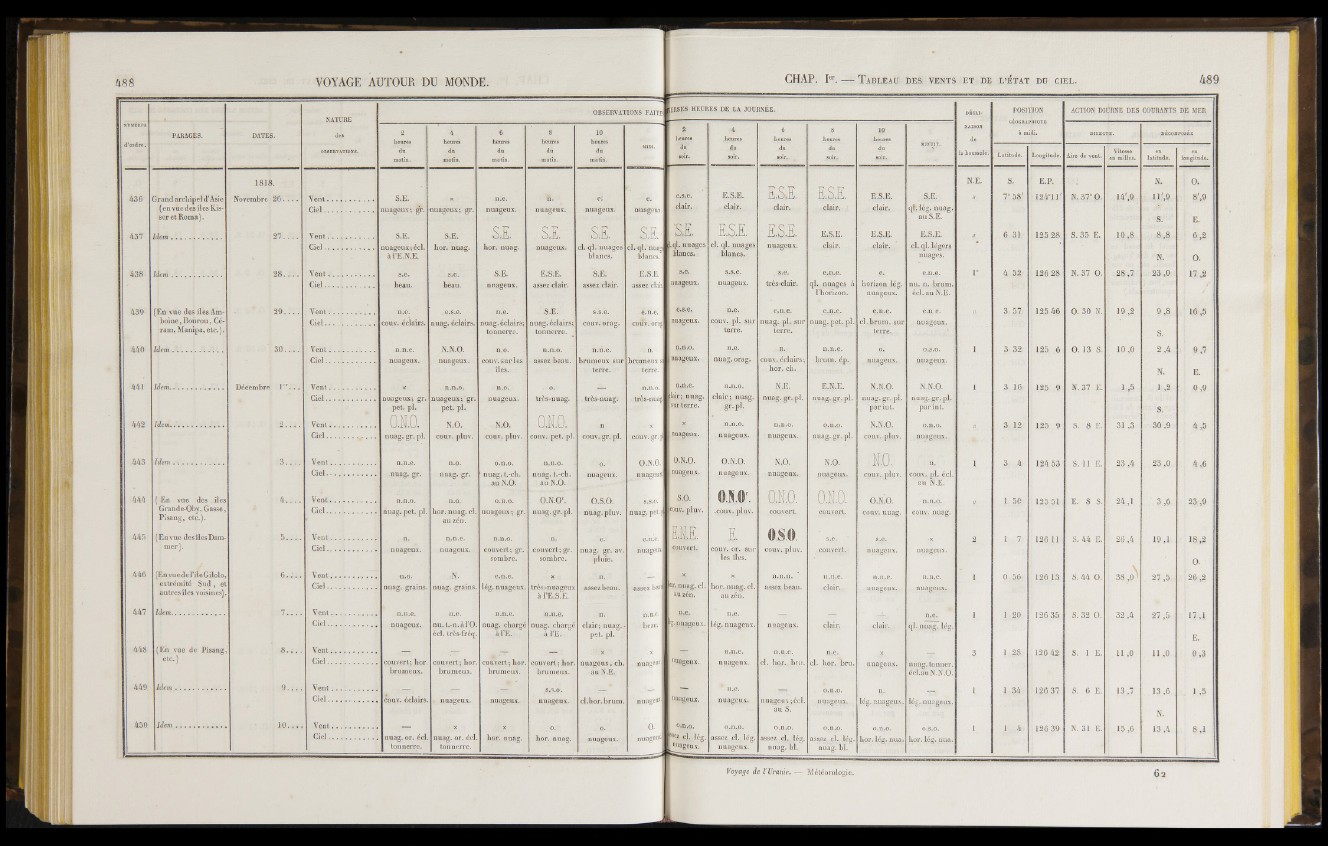 488
VOYAGE AUTOUR DU MONDE.
NUMÉROS d'ordre.
PARAGES.
DATES.
NATURE des OBSERVATIONS.
OBSERVATIONS FAITES
2 heures du matin.
4 heures du matin.
6 heures du matin.
8 heures du matin.
10 heures du matin.
MIDI.
1818.
436 Grand archipel d'Asie (en vue des îles Kisser et Roma). Novembre 26....
Vent S.E. × n.e. n. e. e.
Ciel nuageux; gr. nuageux; gr. nuageux. nuageux. nuageux. nuageux
437 Idem 27....
Vent S.E. S.E. S.E. S.E. S.E. S.E.
Ciel nuageux; écl. à l'E.N.E. hor. nuag. hor. nuag. nuageux. cl. ql. nuages blancs. cl. ql. nuag. blancs.
438 Idem 28....
Vent s.e. s.e. S.E. E.S.E. S.E. E.S.E.
Ciel beau. beau. nuageux. assez clair. assez clair. assez clair
439 (En vue des îles Amboine, Bourou, Céram, Manipa, etc.). 29....
Vent n.e. e.s.e. n.e. S.E. s.s.e. e.n.e.
Ciel couv. éclairs. nuag. éclairs. nuag. éclairs; tonnerre. nuag. éclairs; tonnerre. couv. orag. couv. orag.
440 Idem 30....
Vent n.n.e. N.N.O. n.e. n.n.o. n.n.e. n.
Ciel nuageux. nuageux. couv. sur les îles. assez beau. brumeux sur terre. brumeux terre.
441 Idem Décembre 1er...
Vent × n.n.o. n.o. o. — n.n.o.
Ciel nuageux; gr. pet. pl. nuageux; gr. pet. pl. nuageux. très-nuag. très-nuag. très-nuag.
442 Idem 2....
Vent O.N.O. N.O. N.O. O.N.O. n ×
Ciel nuag. gr. pl. couv. pluv. couv. pluv. couv. pet. pl. couv. gr. pl. couv. gr. pl.
443 Idem 3....
Vent n.n.e. n.o. o.n.o. n.n.o. o. O.N.O.
Ciel nuag. gr. nuag. gr. nuag. t.-ch. au N.O. nuag. t.-ch. au N.O. nuageux. nuageux
444 (En vue des îles Grande-Oby, Gasse, Pisang, etc.). 4....
Vent n.n.o. n.o. o.n.o. O.N.Or. O.S.O. s.s.o.
Ciel nuag. pet. pl. hor. nuag. cl. au zén. nuageux; gr. nuag. gr. pl. nuag. pluv. nuag. pet. pl.
445 (En vue des îles Dammer). 5....
Vent n. n.n.e. n.n.o. n. e. n.n.e.
Ciel nuageux. nuageux. couvert; gr. sombre. couvert; gr. sombre. nuag. gr. av. pluie. nuageux
446 (En vue de l'île Gilolo, extrémité Sud, et autres îles voisines). 6....
Vent n.o. N. o.n.o. × n. —
Ciel nuag. grains. nuag. grains. lég. nuageux. très-nuageux à l'E.S.E. assez beau. assez beau
447 Idem 7....
Vent n.n.o. n.e. n.n.o. n.n.e. n. n.n.e.
Ciel nuageux. nu. t.-n. à l'O. écl. très-fréq. nuag. chargé à l'E. nuag. chargé à l'E. clair; nuag. pet. pl. beau.
448 (En vue de Pisang, etc.) 8....
Vent — — — — × ×
Ciel couvert; hor. brumeux. couvert; hor. brumeux. couvert; hor. brumeux. couvert; hor. brumeux. nuageux, ch. au N.E. nuageux
449 Idem 9....
Vent — — — s.s.o. — —
Ciel couv. éclairs. nuageux. nuageux. nuageux. cl. hor. brum. nuageux
450 Idem 10....
Vent — × × o. o. O.
Ciel nuag. or. écl. tonnerre. nuag. or. écl. tonnerre. hor. nuag. hor. nuag. nuageux. nuageux
CHAP. Ier. — TABLEAU DES VENTS ET DE L'ÉTAT DU CIEL.
489
HEURES DE LA JOURNÉE.
2 heures du soir.
4 heures du soir.
6 heures du soir.
8 heures du soir.
10 heures du soir.
MINUIT.
DÉCLINAISON de la boussole.
POSITION GÉOGRAPHIQUE à midi.
Latitude. Longitude.
ACTION DIURNE DES COURANTS DE MER
DIRECTE. Aire de vent. Vitesse en milles.
DÉCOMPOSÉE en latitude. en longitude.
N.E. S. E.P. N. O.
e.s.e. E.S.E. E.S.E. E.S.E. E.S.E. S.E. 7°58' 124°11' N.37°O. 14',0 11',0 8',9
clair. clair. clair. clair. clair. ql. lég. nuag. au S.E.
S. E.
S.E. E.S.E. E.S.E. E.S.E. E.S.E. E.S.E. 6 31 125 28 S. 35 E. 10,8 8,8 6,2
ql. nuages blancs. cl. ql. nuages blancs. nuageux. clair. clair. cl. ql. légers nuages.
N. O.
s.e. s.s.e. s.e. e.n.e. e. e.n.e. 1° 4 52 126 28 N. 37 O. 28,7 23,0 17,2
nuageux. nuageux. très-clair. ql. nuages à l'horizon. horizon lég. nuageux. nu. n. brum. écl. au N.E.
e.s.o. n.o. e.n.e. e.n.e. e.n.e. e.n.e. 3 57 125 46 O. 30 N. 19,2 9,8 16,5
nuageux. couv. pl. sur terre. nuag. pl. sur terre. nuag. pet. pl. cl. brum. sur terre. nuageux.
S.
n.n.o. n.e. n. n.n.e. e. o.s.o. 1 3 32 125 6 O. 13 S. 10,0 2,4 9,7
nuageux. nuag. orag. couv. éclairs; hor. ch. brum. ép. nuageux. nuageux.
N. E.
o.n.o. n.n.o. N.E. E.N.E. N.N.O. N.N.O. 1 3 16 125 9 N. 37 E. 1,5 1,2 0,9
clair; nuag. sur terre. clair; nuag. gr. pl. nuag. gr. pl. nuag. gr. pl. nuag. gr. pl. par int. nuag. gr. pl. par int.
S.
× n.n.o. n.n.o. o.n.o. N.N.O. o.n.o. 3 12 125 9 S. 8 E. 31,5 30,9 4,5
nuageux. nuageux. nuageux. nuag. gr. pl. couv. pluv. nuageux.
O.N.O. O.N.O. N.O. N.O. N.O. n. 1 3 4 124 53 S. 11 E. 23,4 23,0 4,6
nuageux. nuageux. nuageux. nuageux. couv. pluv. couv. pl. écl. au N.E.
S.O. O.N.Or. O.N.O. O.N.O. O.N.O. n.n.o. 1 50 125 51 E. 8 S. 24,1 3,6 23,9
couv. pluv. couv. pluv. couvert. couvert. couv. nuag. couv. nuag.
E.N.E. E. OSO s.e. s.e. × 2 1 7 126 11 S. 44 E. 26,4 19,1 18,2
couvert. couv. or. sur les îles. couv. pluv. couvert. nuageux. nuageux.
O.
× × n.n.o. n.n.e. n.n.e. n.n.e. 1 0 56 126 15 S. 44 O. 38,0 27,5 26,2
nuag. cl. au zén. hor. nuag. cl. au zén. assez beau. clair. nuageux. nuageux.
n.e. n.e. — — — n.e. 1 1 20 126 35 S. 32 O. 32,4 27,5 17,1
nuageux. lég. nuageux. nuageux. clair. clair. ql. nuag. lég.
E.
— n.n.e. n.n.e. n.e. × — 3 1 28 126 42 S. 1 E. 11,0 11,0 0,3
nuageux. nuageux. cl. hor. bru. cl. hor. bru. nuageux. nuag. tonner. écl. au N.N.O.
— n.e. — o.n.o. n. — 1 1 34 126 37 S. 6 E. 13,7 13,6 1,5
nuageux. nuageux. nuageux; écl. au S. nuageux. lég. nuageux. lég. nuageux.
N.
o.n.o. o.n.o. o.n.o. o.n.o. o.n.o. o.s.o. 1 1 4 126 30 N. 31 E. 15,6 13,4 8,1
assez cl. lég. nuageux. assez cl. lég. nuageux. assez cl. lég. nuag. bl. assez cl. lég. nuag. bl. hor. lég. nua. hor. lég. nua.
Voyage de l'Uranie. — Météorologie.
62